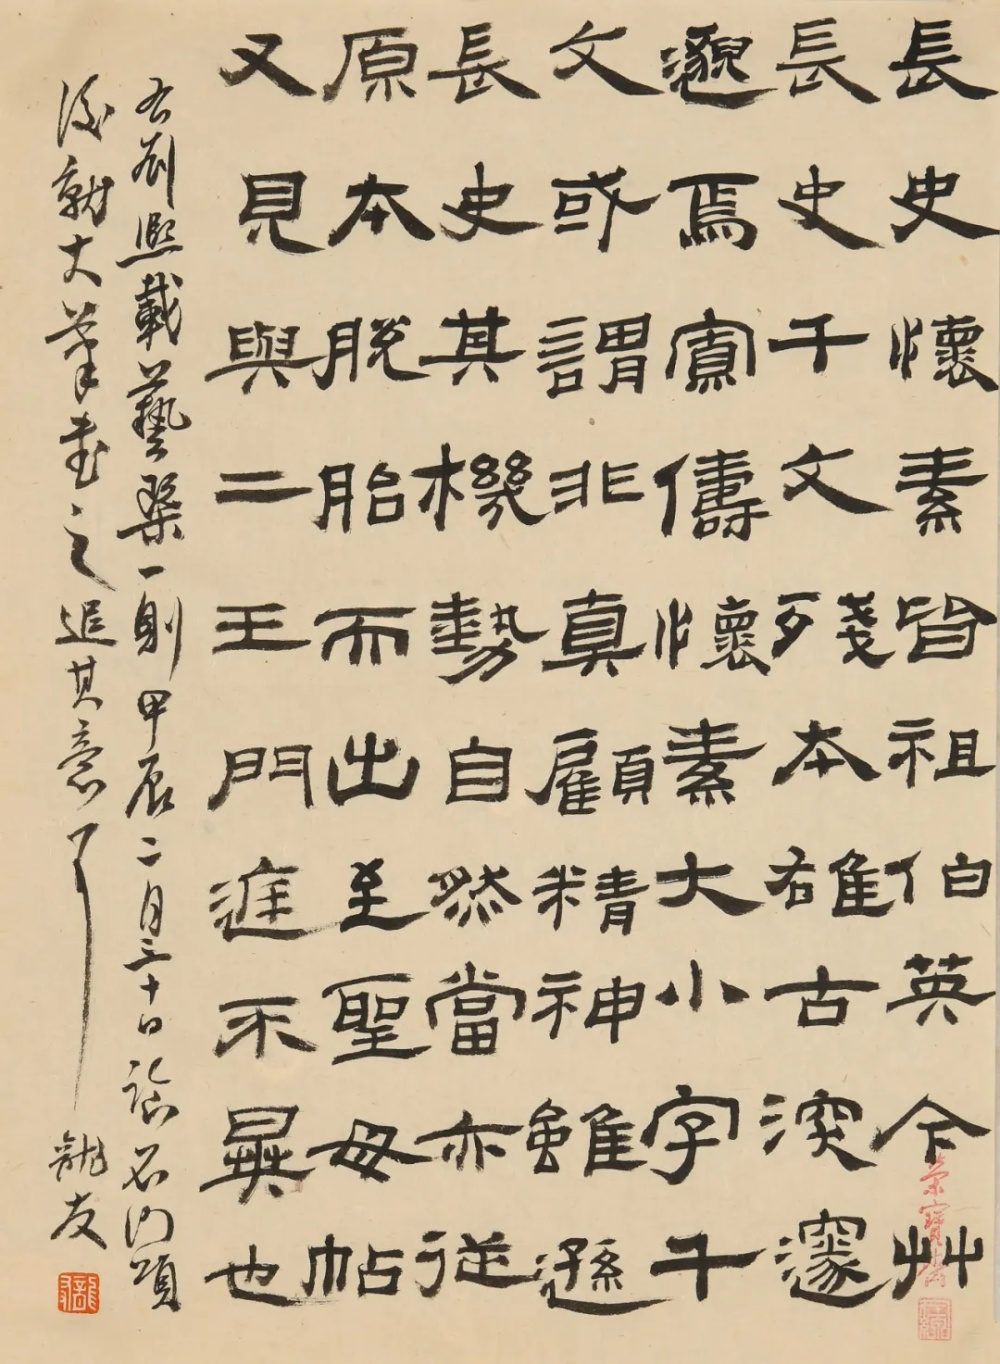 長史懷素皆祖伯英今艸
長史千文殘本雄古深邃
邈焉寡儔懷素大小字千
文或謂非真顧精神雖遜
長史其機勢自然當亦從
原本脫胎而出至聖母帖
又見與二王門庭不異也
右劉熙載藝槩一則甲辰二月三十日臨石门頌
後就大筆書之追其意耳 龍友
榮寶齋